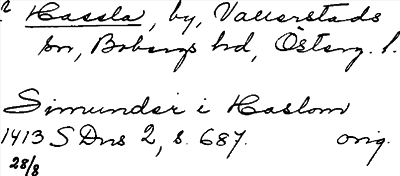 ? Hassla, by, Vallerstads
sn, Bobergs hd, Österg. l.
Simunder i Haslom
1413 SDns 2, s. 687. orig.
28/8